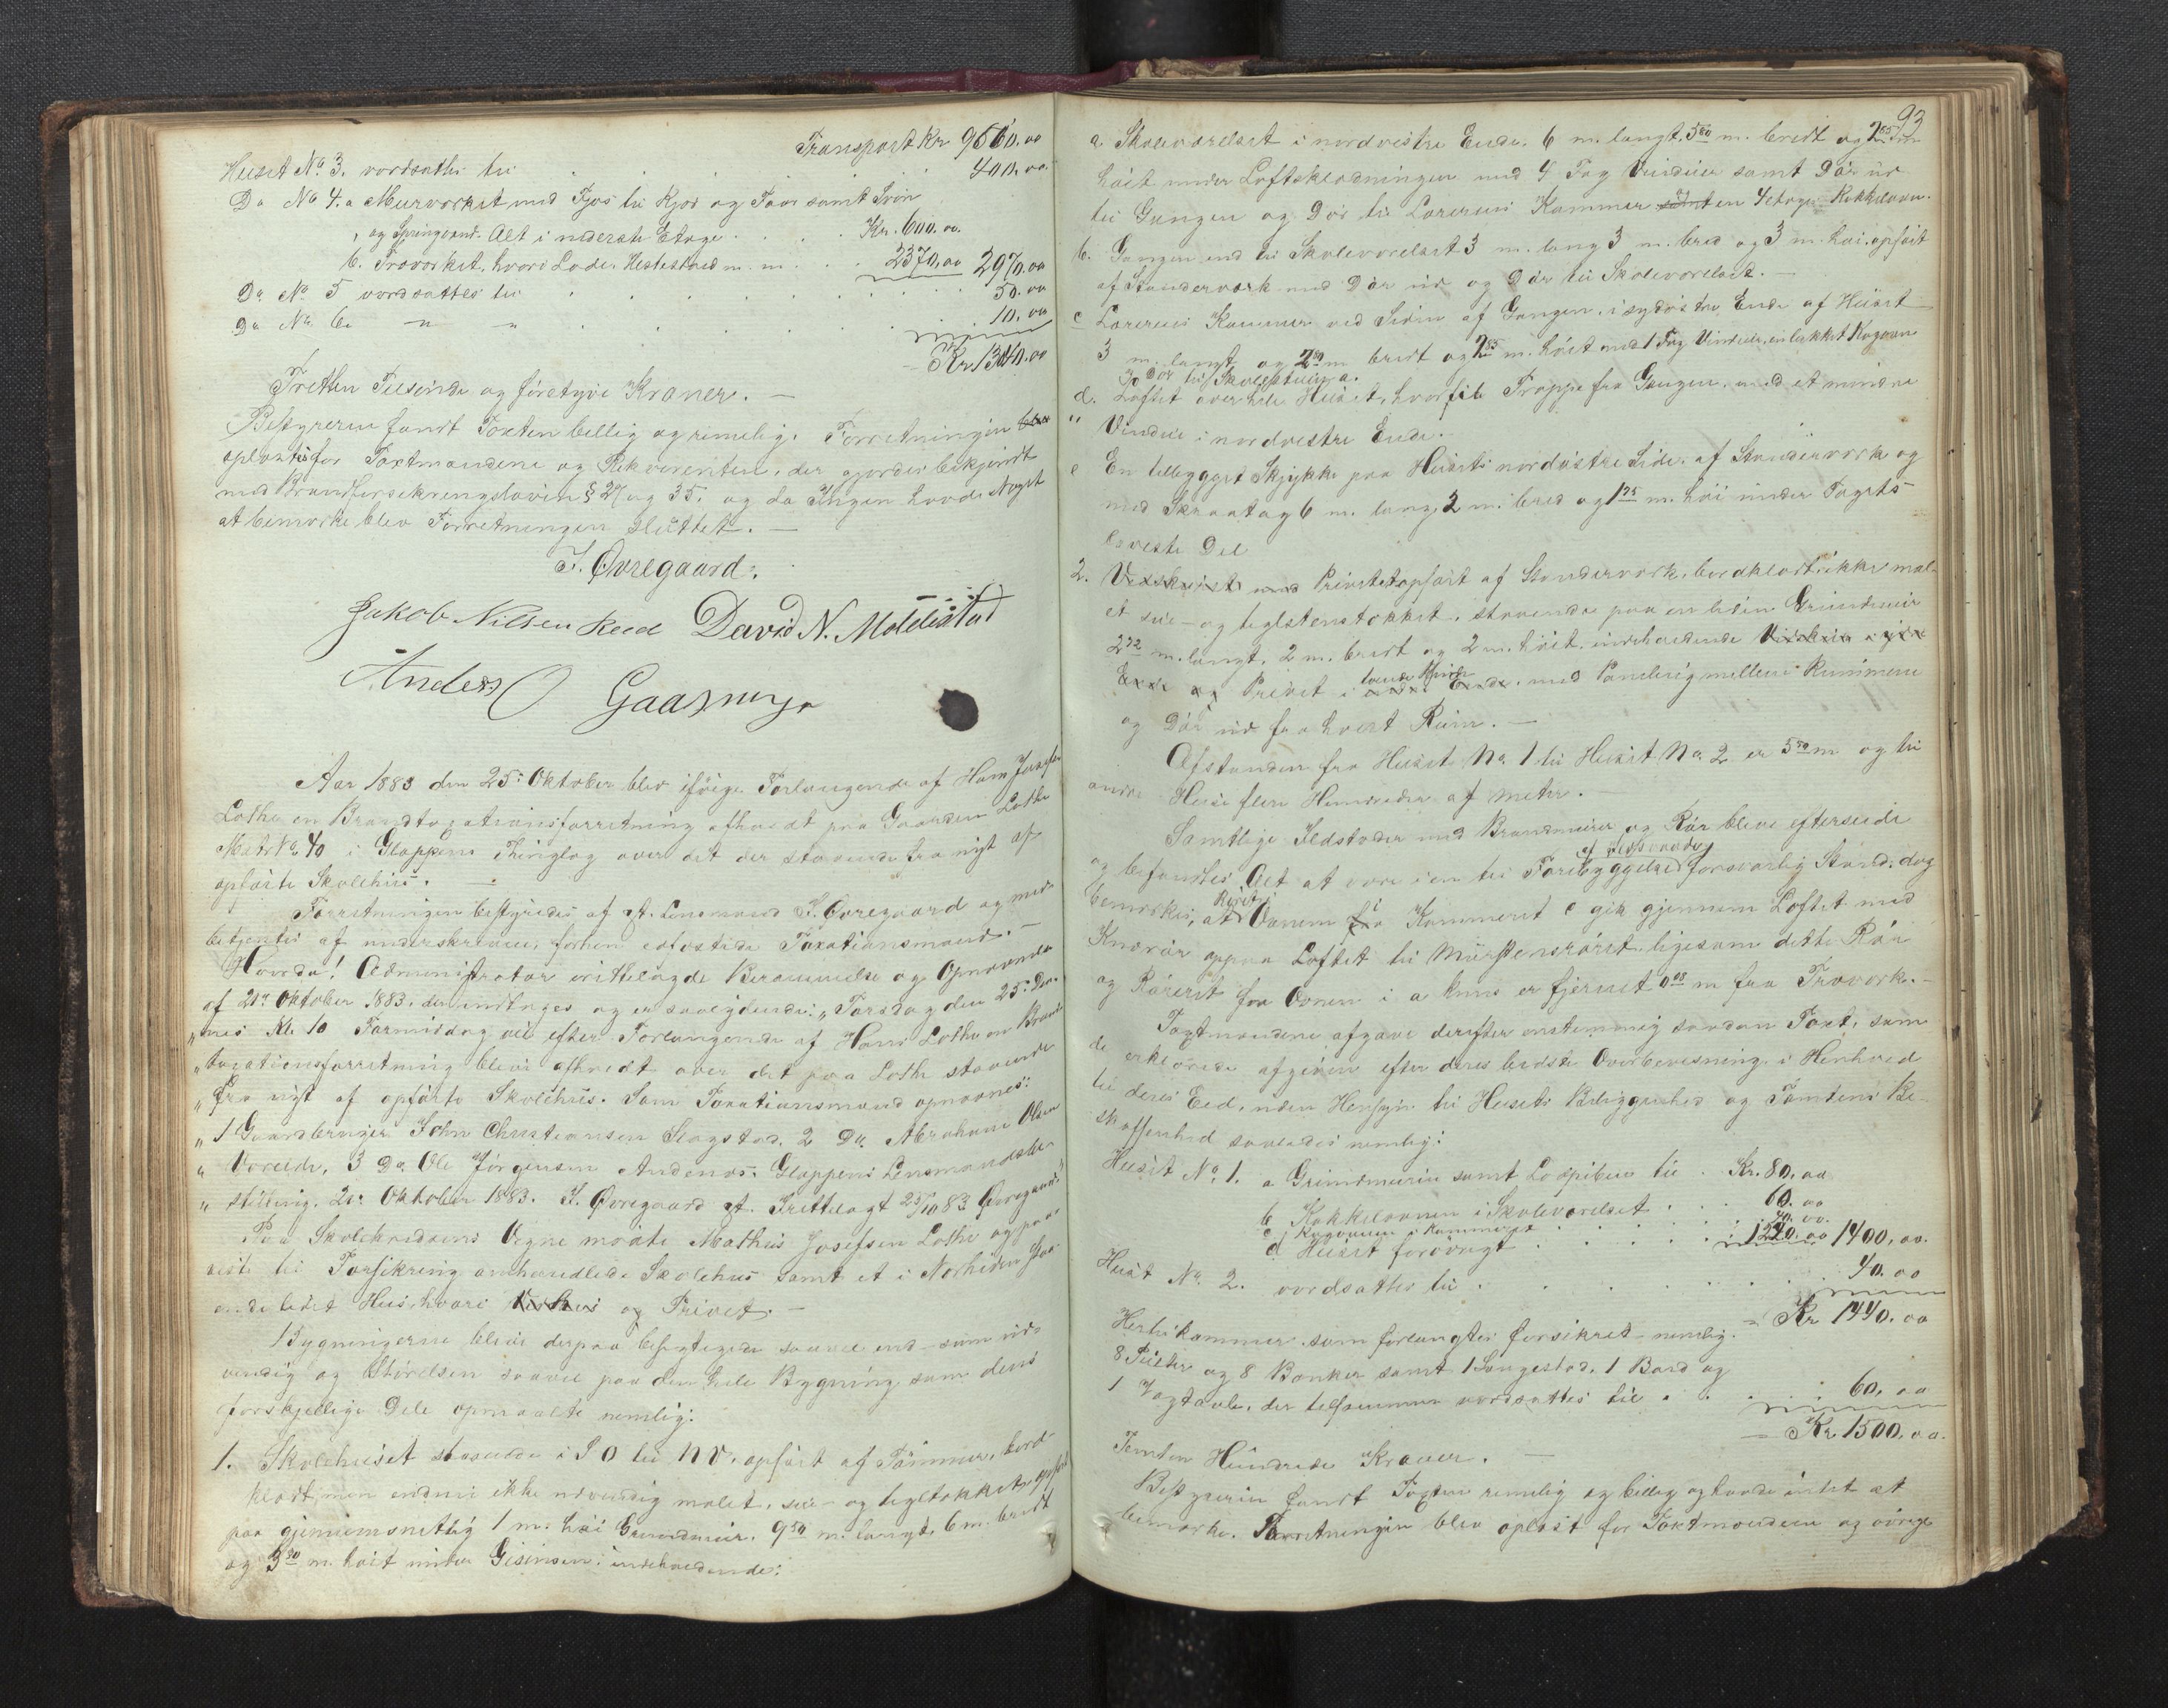 Transport Kr 9610.00
Huset No 3. værdsattes til . . . . 400.00
Do No 4. a Murværket med Fjøs til Kjør og Faar samt Sviin
og Springvand. Alt i nederste Etage . . . . Kr. 600.00.
b. Træværket, hvori Lade, Hestestald m. m. . . 2370,00 2970.00
Do No 5 værdsattes til . . . . . . . 50.00
Do No 6. " " . . . . . . . 10.00
Kr 13040.00
Tretten Tusinde og føretyve Kroner. –
Bestyreren fandt Taxten billig og rimelig. Forretningen blev
oplæst for Taxtmændene og Rekvirenten, der gjordes bekjendt
med Brandforsikringsloven § 29 og 35. og da Ingen havde Noget
at bemærke blev Forretningen sluttet. –
I. Øvregaard.
Jakob Nilsen Reed David N. Moldestad
Anders O Gaasmyr
Aar 1883 den 25. Oktober blev ifølge Forlangende af Hans Josefsen
Lothe en Brandtaxationsforretning afholdt paa Gaarden Lothe
Matr No 40 i Gloppens Thinglag over det der staaende fra nyt af
opførte Skolehus. –
Forretningen bestyredes af st. Lensmand I. Øvregaard og med-
betjentes af underskrevne, forhen edfæstede Taxationsmænd. –
Hvorda! Administrator irettelagde Berammelse og Opnævnelse
af 21de Oktober 1883, der indtages og er saalydende: „Torsdag den 25. den-
„nes Kl. 10 Formiddag vil efter Forlangende af Hans Lothe en Brand-
„taxationsforretning blive afholdt over det paa Lothe staaende
„fra nyt af opførte Skolehus. Som Taxationsmænd opnævnes:
„1 Gaardbruger John Christiansen Slagstad, 2 Do. Abraham Olsen
„ Vereide, 3 Do Ole Jørgensen Andenæs. Gloppens Lensmandsbe-
„ stilling, 21. Oktober 1883. I. Øvregaard st. Irettelagt 25/10 83 Øvregaard."
Paa Skolekredsens Vegne mødte Mathias Josefsen Lothe og paa-
viste til Forsikring omhandlede Skolehus samt et i Nærheden staa-
ende lidet Hus, hvori Vedskur og Privet. –
Bygningerne bleve derpaa besigtigede saavel ind- som ud-
vendig og Størrelsen saavel paa den hele Bygning som dens
forskjellige Dele opmaalte nemlig:
1. Skolehuset staaende i SO til NV, opført af Tømmer, bord-
klædt, men endnu ikke udvendig malet, sue- og tegltækket, opført
paa gjennemsnitlig 1 m. høi Grundmuur, 9 50 m. langt, 6 m. bredt
og 3 90 m. høit under Gesimsen, indeholdende:
93
a. Skoleværelset i nordvestre Ende, 6 m. langt, 5 80 m. bredt og 2 85 m
høit under Loftsklædningen med 4 Fag Vinduer samt Dør ud
til Gangen og Dør til Lærerens Kammer samt en 4 etages Kakkelovn.
b. Gangen ind til Skoleværelset 3 m. lang 3 m. bred og 3 m. høi, opført
af Stænderværk med Dør ud og Dør til Skoleværelset. –
c Lærerens Kammer ved Siden af Gangen, i sydøstre Ende af Huset
3 m. langt og 2 80 m bredt og 2 85 m. høit med 1 Fag Vinduer, en lukket Kogovn
og Dør til Skolestuen a.
d. Loftet over hele Huset, hvortil Trappe fra Gangen, med et mindre
" Vindue i nordvestre Ende.
e En tilbygget Skjykke paa Husets nordøstre Side, af Stænderværk og
med Skraatag 6 m. lang, 2 m. bred og 1 75 m. høi under Tagets
laveste Del
2. Vedskjul med Privet opført af Stænderværk, bordklædt, ikke mal-
et sue- og teglstenstækket, staaende paa en liden Grundmuur
2 72 m. langt, 2 m. bredt og 2 m. høit, indeholdende Vedskur i ene
Ende og Privet i anden Ende, med Paneling mellem Rummene
og Dør ud fra hvert Rum. –
Afstanden fra Huset No 1 til Huset No 2 er 5 50 m og til
andre Huse flere Hundreder af Meter. –
Samtlige Ildsteder med Brandmure og Rør bleve efterseede
og befandtes Alt at være i en til Forebyggelse af Ildsvaade forsvarlig Stand, dog
bemærkes, at Røret i Ovnen fra Kammeret c gik gjennem Loftet med
Knærør oppaa Loftet til Murstensrøret ligesom dette Rør
og Røreret fra Ovnen i a kuns er fjernet 0 08 m fra Træværk. –
Taxtmændene afgave derefter enstemmig saadan Taxt, som
de erklærede afgiven efter deres bedste Overbevisning i Henhold
til deres Eed, uden Hensyn til Husets Beliggenhed og Tomtens Be-
skaffenhed saaledes nemlig:
Huset No 1. a Grundmuren samt Løspiben til . Kr. 80,00
b Kakkelovnen i Skoleværelset . . . 60.00
c Kogovnen i Kammeret . . . 20.00.
d Huset forøvrigt . . . . . 1240.00 1400,00.
Huset No 2. værdsattes til . . . . . . 40.00
= Kr 1440.00
Hertil kommer som forlangtes forsikret – nemlig:
8 Pulter og 8 Bænker samt 1 Sengestad, 1 Bord og
1 Vægtavle, der tilsammen værdsattes til . . . . 60,00
= Kr. 1500,00.
Femten Hundrede Kroner. –
Bestyreren fandt Taxten rimelig og billig og havde intet at
bemærke. Forretningen blev oplæst for Taxtmændene og øvrige